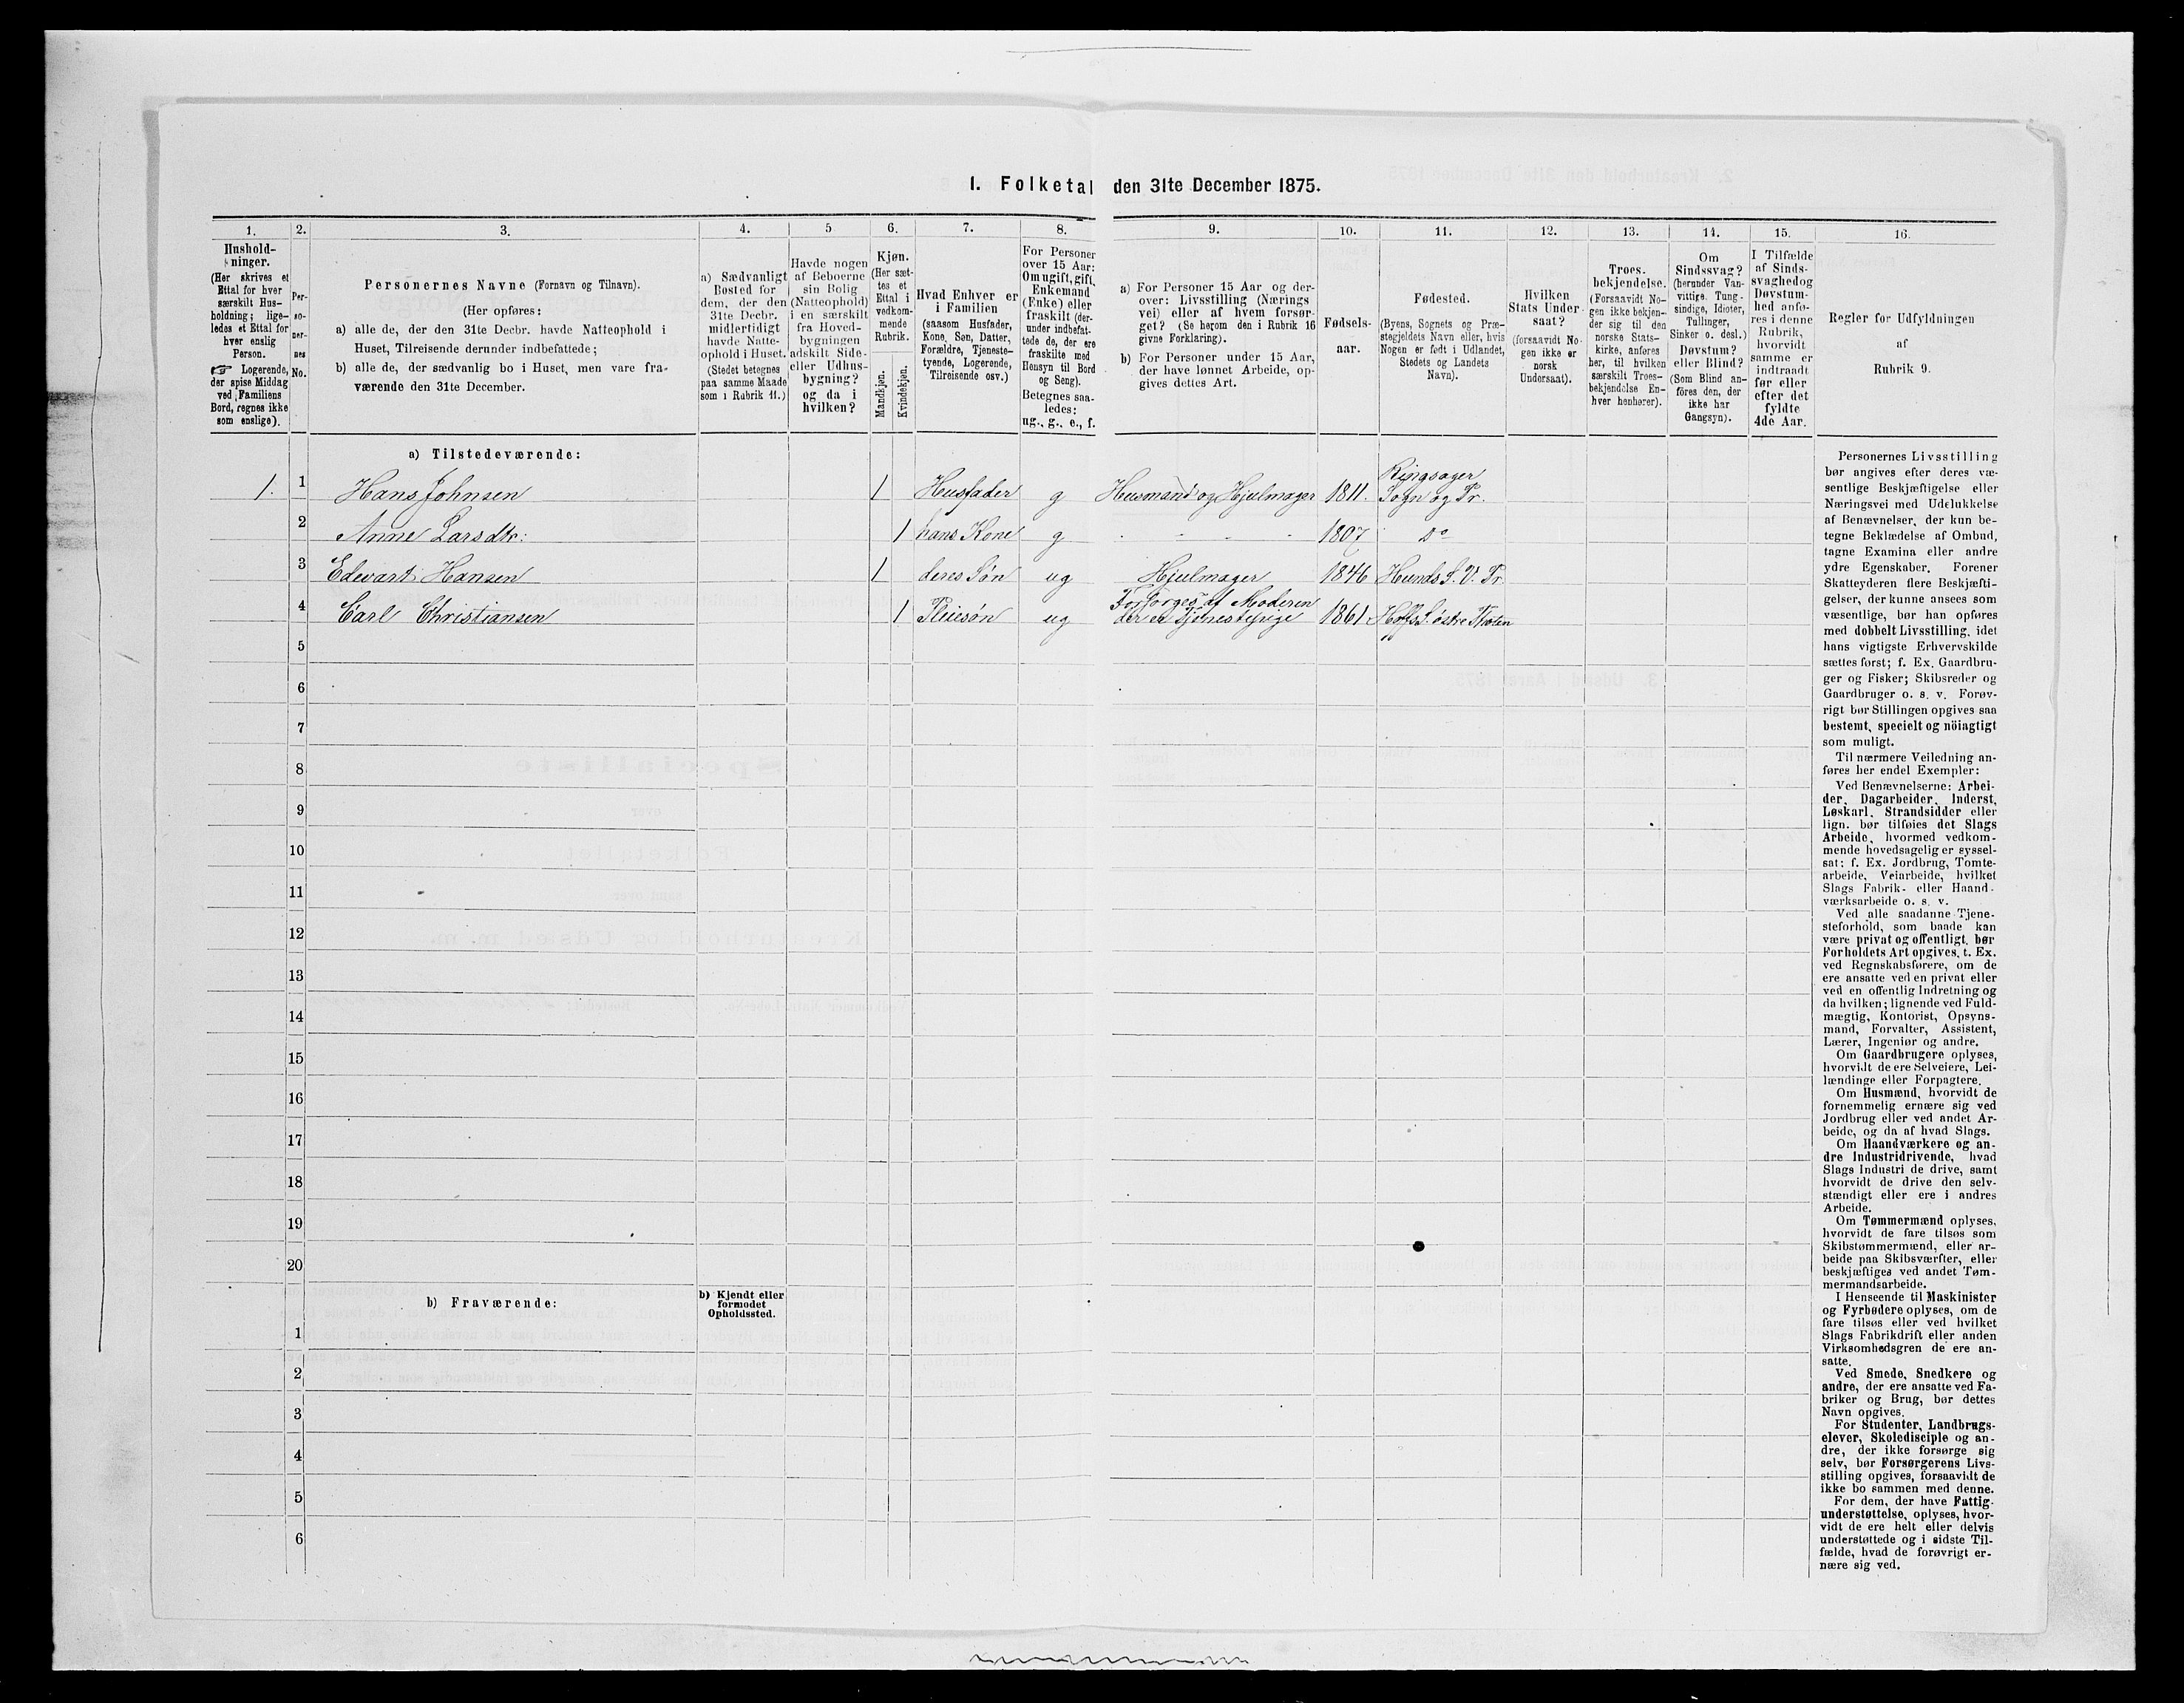 1. Folketal den 31te December 1875.
1.
Hushold-
ninger.
(Her skrives et
Ettal for hver
særskilt Hus-
holdning; lige-
ledes et Ettal for
hver enslig
Person.
☞ Logerende,
der spise Middag
ved Familiens
Bord, regnes ikke
som enslige).
2.
Per-
so-
ner-
nes
No.
3.
Personernes Navne (Fornavn og Tilnavn).
(Her opføres:
a) alle de, der den 31te Decbr. havde Natteophold i
Huset, Tilreisende derunder indbefattede;
b) alle de, der sædvanlig bo i Huset, men vare fra-
værende den 31te December.
4.
a) Sædvanligt
Bosted for
dem, der den
31te Decbr.
midlertidigt
havde Natte-
ophold i Huset.
(Stedet betegnes
paa samme Maade
som i Rubrik 11.)
5
Havde nogen
af Beboerne
sin Bolig
(Natteophold)
i en særskilt
fra Hoved-
bygningen
adskilt Side-
eller Udhus-
bygning?
og da i
hvilken?
6.
Kjøn.
(Her sæt-
tes et
Ettal i
vedkom-
mende
Rubrik.
Mandkjøn.
Kvindekjøn.
7.
Hvad Enhver er
i Familien
(saasom Husfader,
Kone, Søn, Datter,
Forældre, Tjeneste-
tyende, Logerende,
Tilreisende osv.)
8.
For Personer
over 15 Aar:
Om ugift, gift,
Enkemand
(Enke) eller
fraskilt (der-
under indbefat-
tede de, der ere
fraskilte med
Hensyn til Bord
og Seng).
Betegnes saa-
ledes:
ug., g., e., f.
9.
a) For Personer 15 Aar og der-
over: Livsstilling (Nærings
vei) eller af hvem forsør-
get? (Se herom den i Rubrik 16
givne Forklaring).
b) For Personer under 15 Aar,
der have lønnet Arbeide, op-
gives dettes Art.
10.
Fødsels-
aar.
11.
Fødested.
(Byens, Sognets og Præ-
stegjeldets Navn eller, hvis
Nogen er født i Udlandet,
Stedets og Landets
Navn).
12.
Hvilken
Stats Under-
saat?
(forsaavidt No-
gen ikke er
norsk
Undersaat).
13.
Troes-
bekjendelse.
(Forsaavidt No-
gen ikke bekjen-
der sig til den
norske Stats-
kirke, anføres
her, til hvilken
særskilt Troes-
bekjendelse En-
hver henhører).
14.
Om
Sindssvag?
(herunder Van-
vittige, Tung-
sindige, Idioter,
Tullinger,
Sinker o. desl.)
Døvstum?
eller Blind?
(Som Blind an-
föres den, der
ikke har
Gangsyn).
15.
I Tilfælde
af Sinds-
svaghed og
Døvstum-
hed anfø-
res i denne
Rubrik,
hvorvidt
samme er
indtraadt
før eller
efter det
fyldte
4de Aar.
16.
Regler for Udfyldningen
af
Rubrik 9.
a) Tilstedeværende:
1. 1 Hans Johnsen 1 Husfader g Husmand og Hjulmager 1811. Ringsager Sogn og Pr.
2 Anne Larsdtr: 1 hans Kone g - - - - 1807 Do
3 Edevart Hansen 1 deres Søn ug Hjulmager 1846 Hunds S. V. Pr.
4 Carl Christiansen 1 Pleiesøn ug Forsørges af Moderen der er Tjenestepige 1861 Hoffs S. østre Thoten
5
6
7
8
9
10
11
12
13
14
15
16
17
18
19
20
b) Fraværende:
b) Kjendt eller
formodet
Opholdssted.
1
2
3
4
5
6
Personernes Livsstilling
bør angives efter deres væ-
sentlige Beskjæftigelse eller
Næringsvei med Udelukkelse
af Benævnelser, der kun be-
tegne Beklædelse af Ombud,
tagne Examina eller andre
ydre Egenskaber. Forener
Skatteyderen flere Beskjæfti-
gelser, der kunne ansees som
væsentlige, bør han opføres
med dobbelt Livsstilling, idet
hans vigtigste Erhvervskilde
sættes først; f. Ex. Gaardbru-
ger og Fisker; Skibsreder og
Gaardbruger o. s. v. Forøv-
rigt bør Stillingen opgives saa
bestemt, specielt og nöiagtigt
som muligt.
Til nærmere Veiledning an-
føres her endel Exempler:
Ved Benævnelserne: Arbei-
der, Dagarbeider, Inderst,
Løskarl, Strandsidder eller
lign. bør tilføies det Slags
Arbeide, hvormed vedkom-
mende hovedsagelig er syssel-
sat; f. Ex. Jordbrug, Tomte-
arbeide, Veiarbeide, hvilket
Slags Fabrik- eller Haand-
værksarbeide o. s. v.
Ved alle saadanne Tjene-
steforhold, som baade kan
være privat og offentligt, bør
Forholdets Art opgives, t. Ex.
ved Regnskabsførere, om de
ere ansatte ved en privat eller
ved en offentlig Indretning og
da hvilken; lignende ved Fuld-
mægtig, Kontorist, Opsyns-
mand, Forvalter, Assistent,
Lærer, Ingeniør og andre.
Om Gaardbrugere oplyses,
hvorvidt de ere Selveiere, Lei-
lændinge eller Forpagtere.
Om Husmænd, hvorvidt de
fornemmelig ernære sig ved
Jordbrug eller ved andet Ar-
beide, og da af hvad Slags.
Om Haandværkere og an-
dre Industridrivende, hvad
Slags Industri de drive, samt
hvorvidt de drive den selv-
stændigt eller ere i andres
Arbeide.
Om Tømmermænd oplyses,
hvorvidt de fare tilsøs som
Skibstømmermænd, eller ar-
beide paa Skibsværfter, eller
beskjæftiges ved andet Tøm-
mermandsarbeide.
I Henseende til Maskinister
og Fyrbødere oplyses, om de
fare tilsøs eller ved hvilket
Slags Fabrikdrift eller anden
Virksomhedsgren de ere an-
satte.
Ved Smede, Snedkere og
andre, der ere ansatte ved Fa-
briker og Brug, bør dettes
Navn opgives.
For Studenter, Landbrugs-
elever, Skoledisciple og an-
dre, der ikke forsørge sig
selv, bør Forsørgerens Livs-
stilling opgives, forsaavidt de
ikke bo sammen med denne.
For dem, der have Fattig-
understøttelse, oplyses, hvor-
vidt de ere helt eller delvis
understøttede og i sidste Til-
fælde, hvad de forøvrigt er-
nære sig ved.